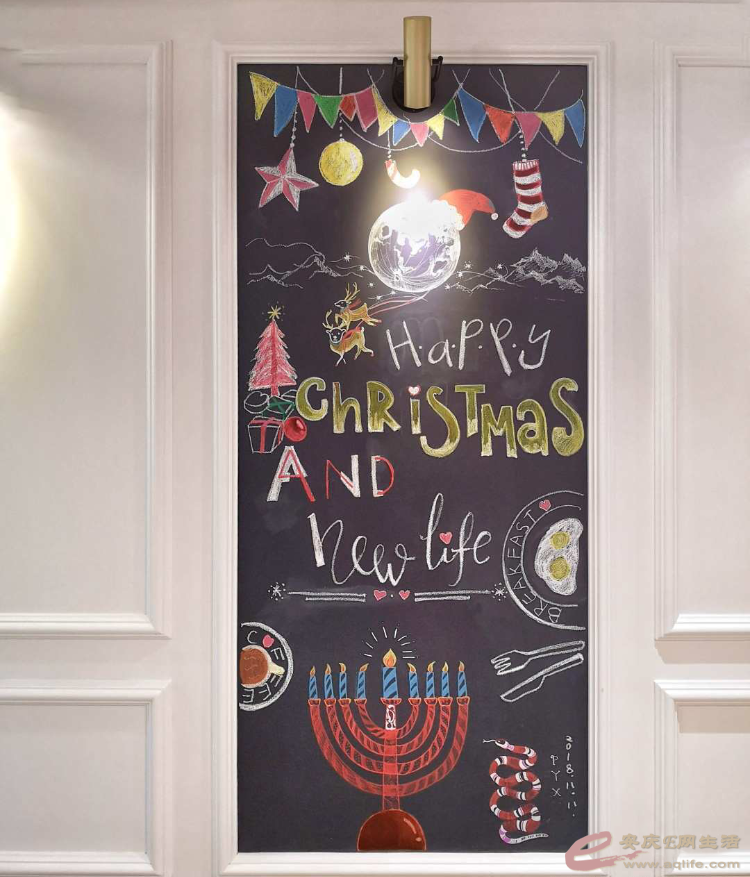 H·a·P·P·y
CHRiSTMaS
AND
New life
BREAKFAST
COFFEE
2018.11.11.
PYX
安庆E网生活
www.aqlife.com